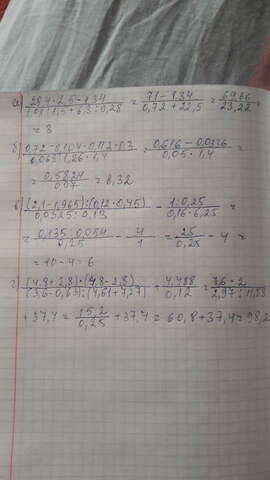 а) 28,4·2,5-1,34 / 1,08:1,5+6,3:0,28 = 71-1,34 / 0,72+22,5 = 69,66 / 23,22 =
= 3
б) 0,72-0,104-0,112·0,3 / 0,063:1,26·1,4 = 0,616-0,0336 / 0,05·1,4 =
= 0,5824 / 0,07 = 8,32
в) (2,1-1,965):(0,12·0,45) / 0,0325:0,13 - 1:0,25 / 0,16·6,25 =
= 0,135:0,054 / 0,25 - 4 / 1 = 2,5 / 0,25 - 4 =
= 10-4=6
г) (4,8+2,8)·(4,8-2,8) / (3,6-0,63):(4,61+7,27) + 4,488 / 0,12 = 7,6·2 / 2,97:11,88
+37,4 = 15,2 / 0,25 +37,4 = 60,8+37,4=98,2